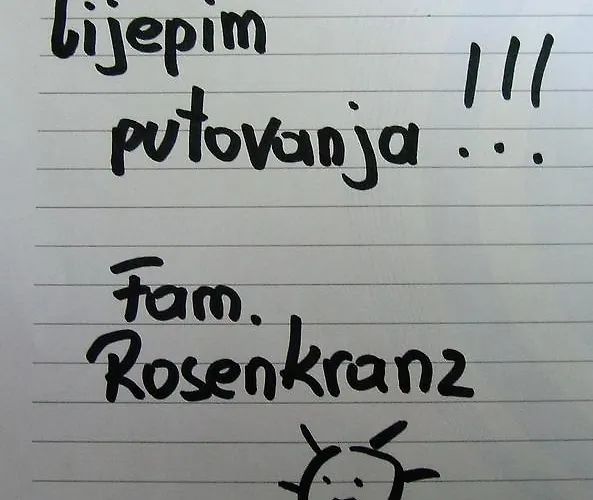 lijepim
putovanja !!!
Fam.
Rosenkranz